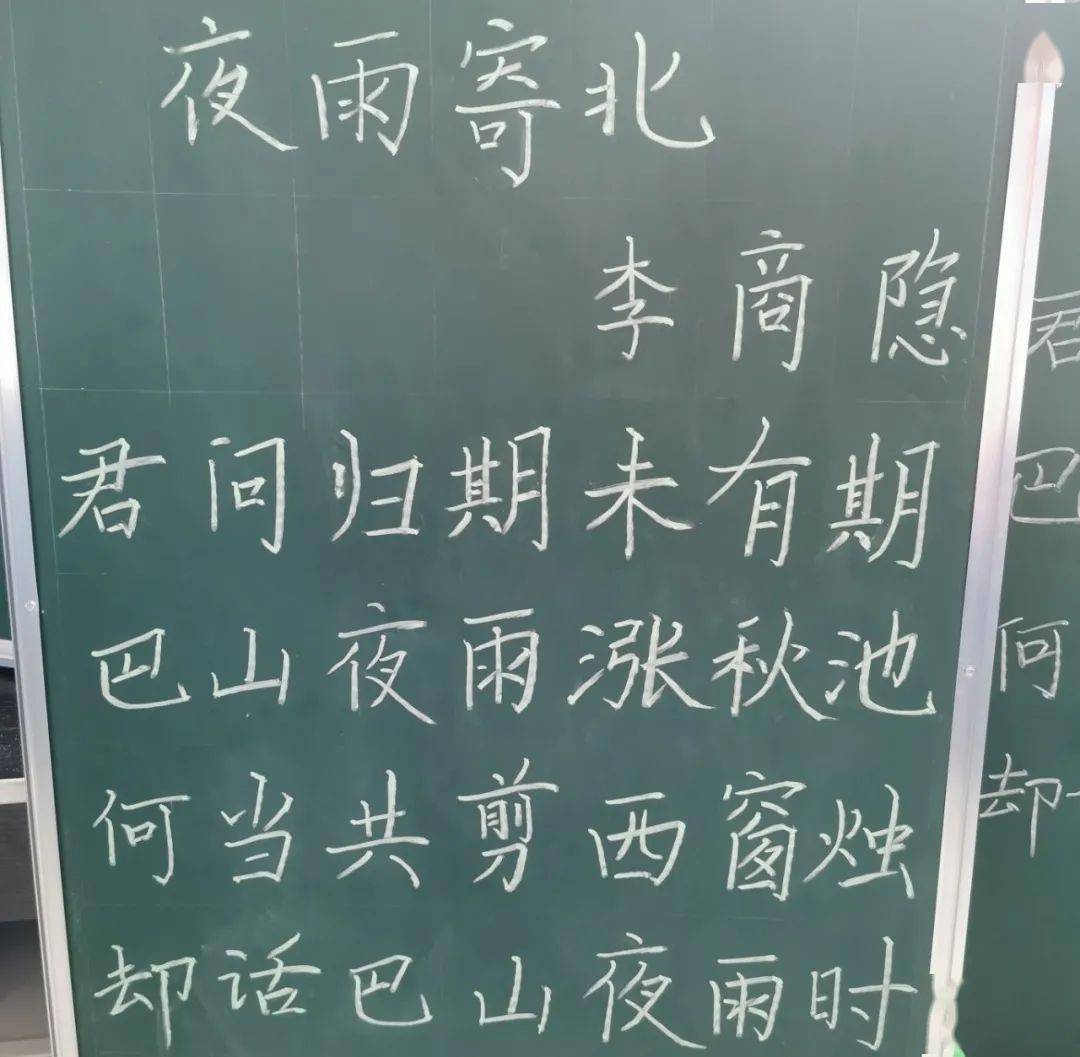 夜雨寄北
李商隐
君问归期未有期
巴山夜雨涨秋池
何当共剪西窗烛
却话巴山夜雨时
君
巴
何
却